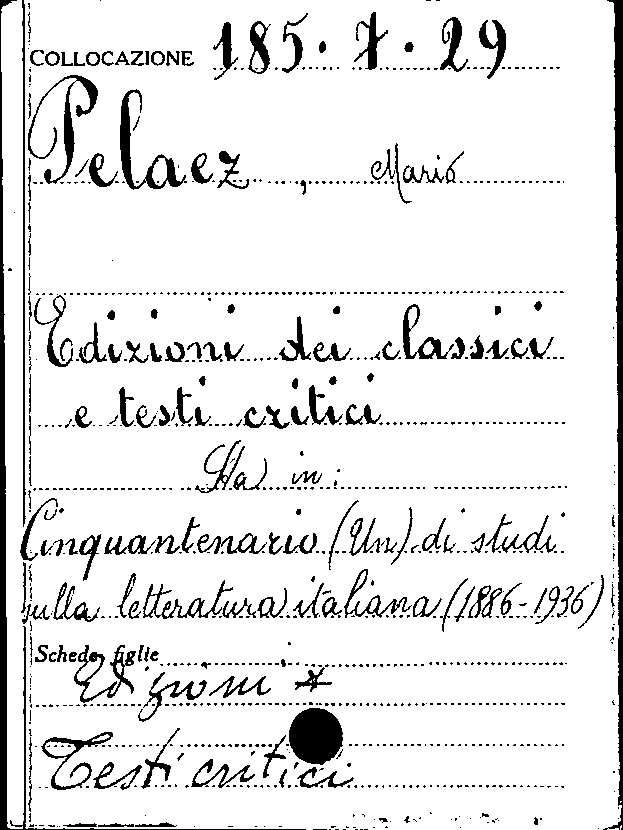 COLLOCAZIONE 185.7.29
Pelaez, Mario
Edizioni dei classici
e testi critici
Sta in:
Cinquantenario (Un) di studi
sulla letteratura italiana (1886-1936)
Schede figlie
Edizioni *
Testi critici